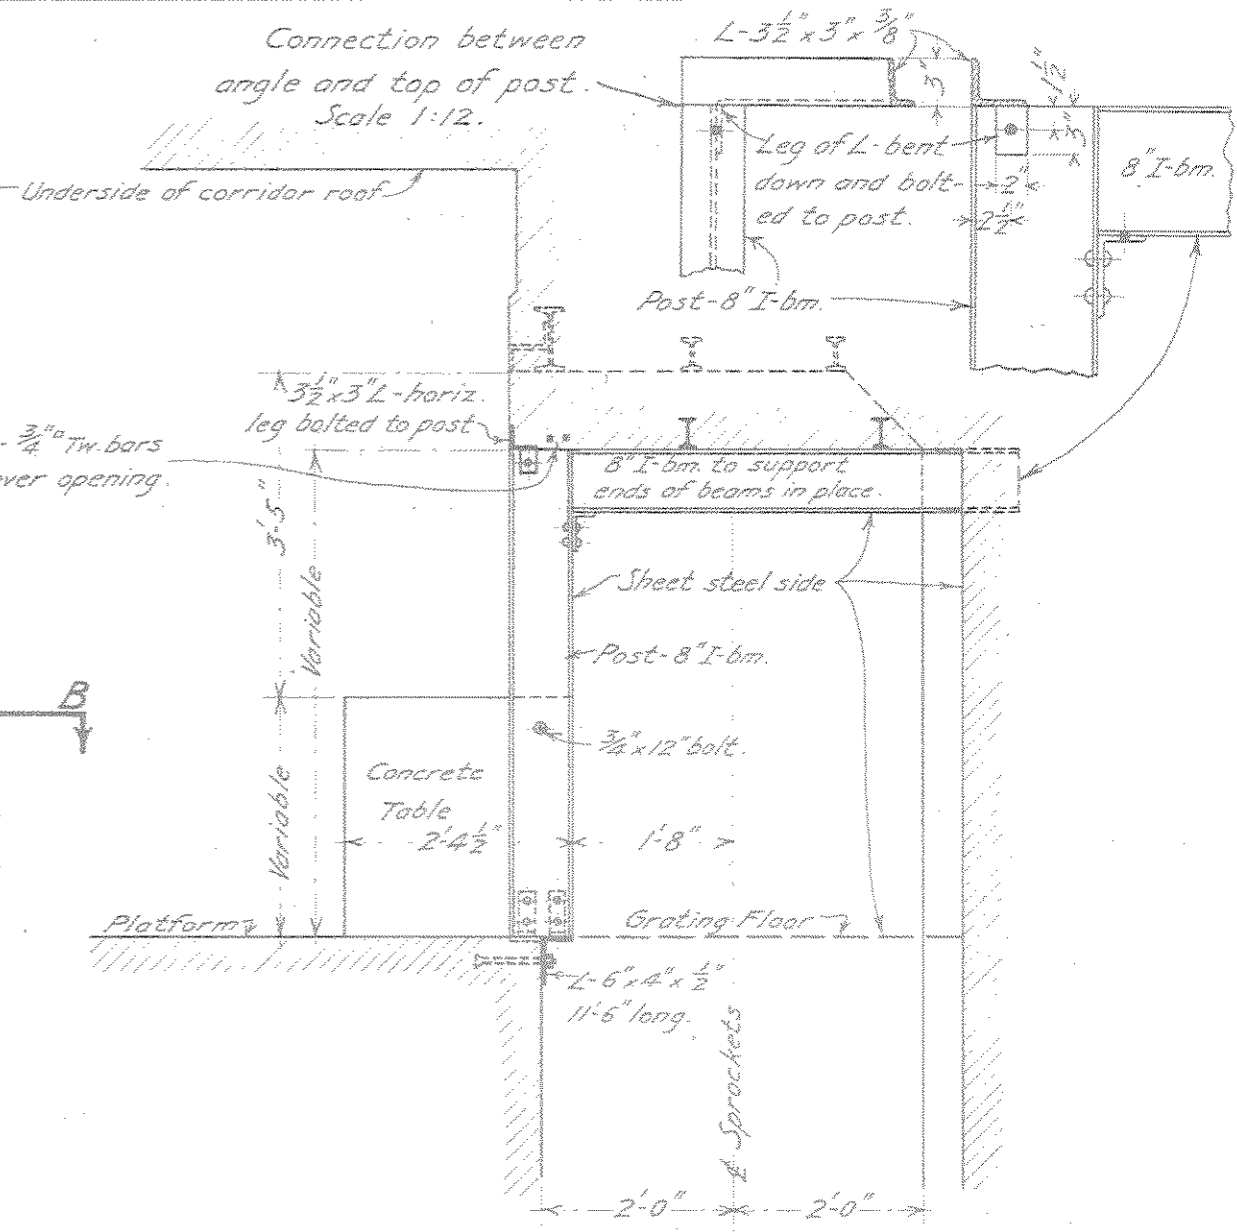 Connection between
angle and top of post.
Scale 1:12.
L-3½"x3"x⅜"
3"
1½"
3"
Leg of L-bent
down and bolt-
ed to post.
2"
2½"
8"I-bm.
Post-8"I-bm.
Underside of corridor roof
3½"x3"L-horiz.
leg bolted to post
-¾"□ Tw. bars
over opening.
8"I-bm. to support
ends of beams in place.
3'-5"
Variable
Sheet steel side
Post-8"I-bm.
B
¾"x12"bolt.
Concrete
Table
Variable
2'-4½"
1'-8"
Platform
Grating Floor
L-6"x4"x½"
11'-6"long.
℄ Sprockets
2'-0"
2'-0"